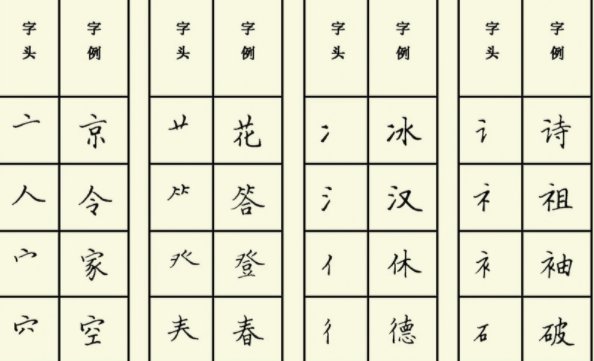 字头 字例 字头 字例 字头 字例 字头 字例
亠 京 艹 花 冫 冰 讠 诗
人 令 ⺮ 答 氵 汉 礻 祖
宀 家 癶 登 亻 休 衤 袖
穴 空 𡗗 春 彳 德 石 破